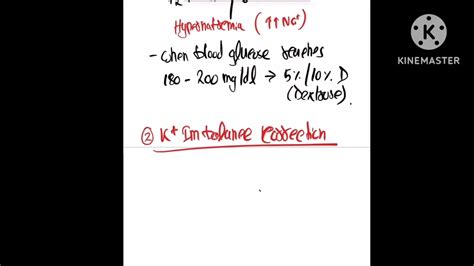 Hypernatremia (↑↑Na⁺)
- When blood glucose reaches
180 - 200 mg/dl → 5% /10% D
(Dextrose).
② K⁺ Imbalance correction
KINEMASTER